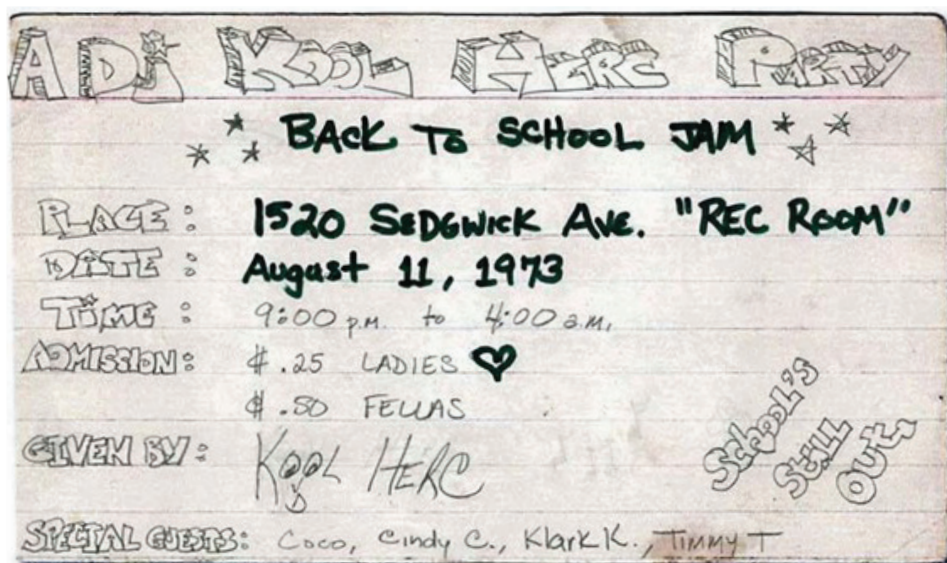 A DJ KOOL HERC PARTY
BACK TO SCHOOL JAM
PLACE: 1520 SEDGWICK AVE. "REC ROOM"
DATE: August 11, 1973
TIME: 9:00 p.m. to 4:00 a.m.
ADMISSION: $.25 LADIES ♥
$.50 FELLAS
GIVEN BY: KOOL HERC
SPECIAL GUESTS: Coco, Cindy C., Klark K., TIMMY T
School's
Still
Out.